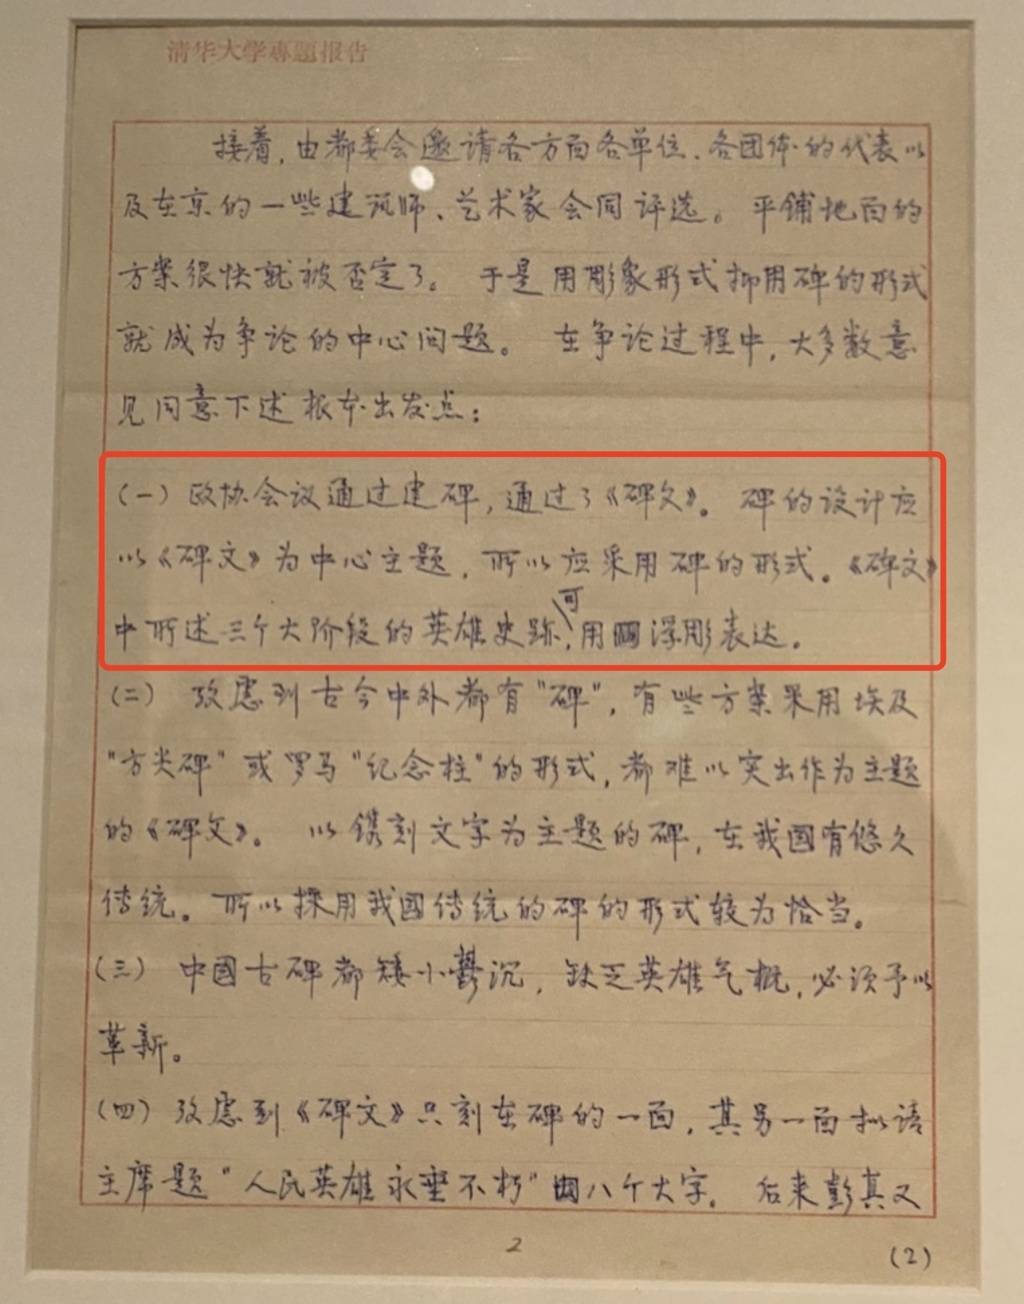 清华大学專題报告
接着，由都委会邀请各方面各单位、各团体的代表以
及在京的一些建筑师、艺术家会同评选。平铺地面的
方案很快就被否定了。于是用彫象形式抑用碑的形式
就成为争论的中心问题。在争论过程中，大多数意
见同意下述根本出发点：
（一）政协会议通过建碑，通过了《碑文》。碑的设计应
以《碑文》为中心主题，所以应采用碑的形式。《碑文》
中所述三个大阶段的英雄史跡，可用浮彫表达。
（二）考虑到古今中外都有"碑"，有些方案采用埃及
"方尖碑"或罗马"纪念柱"的形式，都难以突出作为主题
的《碑文》。以鐫刻文字为主题的碑，在我國有悠久
传统。所以採用我國传统的碑的形式较为恰当。
（三）中國古碑都矮小鬱沉，缺乏英雄气概，必须予以
革新。
（四）考虑到《碑文》只刻在碑的一面，其另一面拟请
主席题"人民英雄永垂不朽"八个大字。后来彭真又
2
(2)